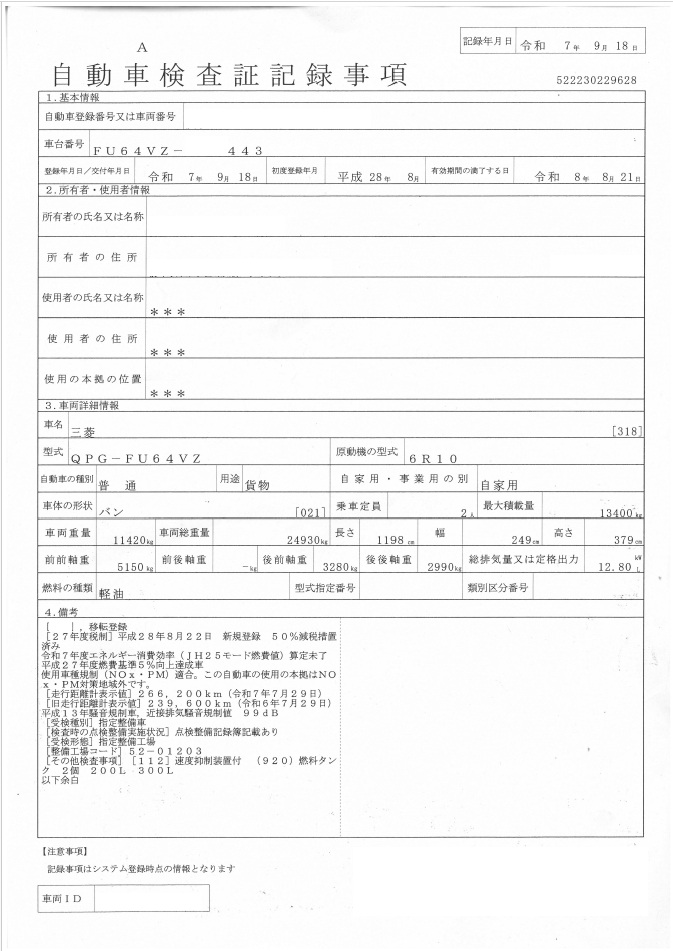 記録年月日 令和 7年 9月 18日
A
自動車検査証記録事項
522230229628
1.基本情報
自動車登録番号又は車両番号
車台番号 FU64VZ－ 443
登録年月日／交付年月日 令和 7年 9月 18日 初度登録年月 平成 28年 8月 有効期間の満了する日 令和 8年 8月 21日
2.所有者・使用者情報
所有者の氏名又は名称
所有者の住所
使用者の氏名又は名称 ＊＊＊
使用者の住所 ＊＊＊
使用の本拠の位置 ＊＊＊
3.車両詳細情報
車名 三菱 [318]
型式 QPG－FU64VZ 原動機の型式 6R10
自動車の種別 普通 用途 貨物 自家用・事業用の別 自家用
車体の形状 バン [021] 乗車定員 2人 最大積載量 13400kg
車両重量 11420kg 車両総重量 24930kg 長さ 1198cm 幅 249cm 高さ 379cm
前前軸重 5150kg 前後軸重 －kg 後前軸重 3280kg 後後軸重 2990kg 総排気量又は定格出力 12.80 kW L
燃料の種類 軽油 型式指定番号 類別区分番号
4.備考
[ ]，移転登録
[27年度税制]平成28年8月22日 新規登録 50％減税措置
済み
令和7年度エネルギー消費効率（JH25モード燃費値）算定未了
平成27年度燃費基準5％向上達成車
使用車種規制（NOx・PM）適合。この自動車の使用の本拠はNO
x・PM対策地域外です。
[走行距離計表示値]266，200km（令和7年7月29日）
[旧走行距離計表示値]239，600km（令和6年7月29日）
平成13年騒音規制車，近接排気騒音規制値 99dB
[受検種別]指定整備車
[検査時の点検整備実施状況]点検整備記録簿記載あり
[受検形態]指定整備工場
[整備工場コード]52－01203
[その他検査事項][112]速度抑制装置付 （920）燃料タン
ク 2個 200L 300L
以下余白
【注意事項】
記録事項はシステム登録時点の情報となります
車両ID